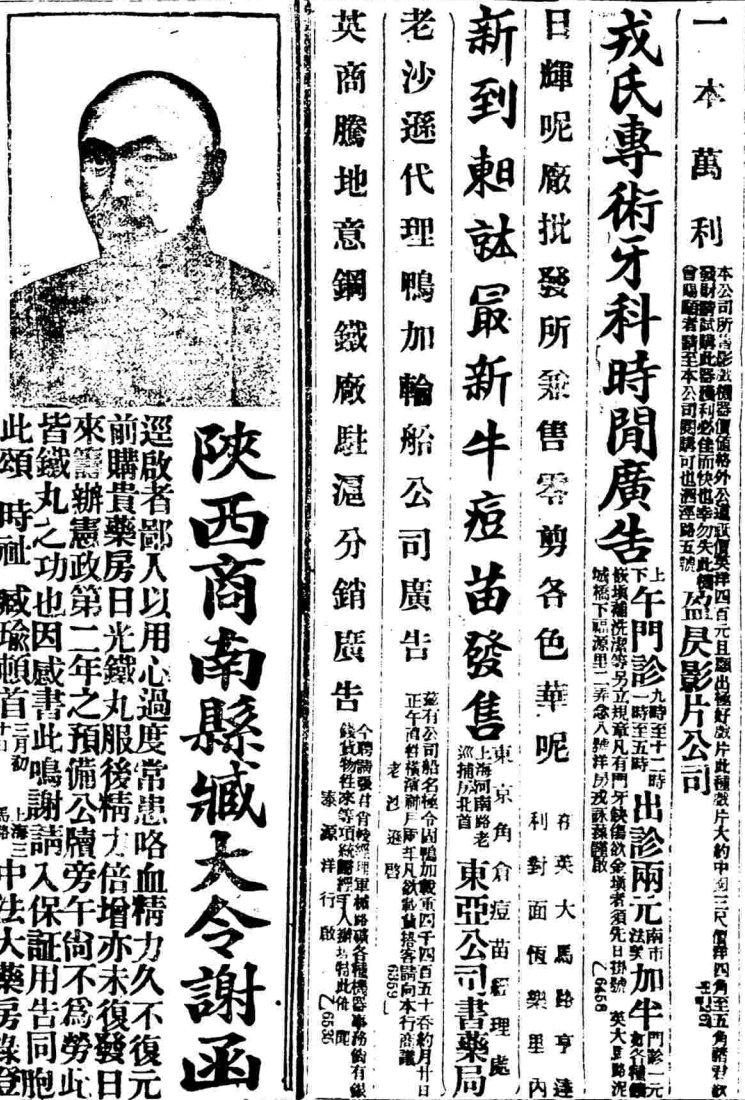 一本萬利
本公司所售影戲機器價値格外公道
發財請試購此器獲利必佳而快也幸勿失此機
曾賜顧者請至本公司面購可也泗涇路五號
影片公司
戎氏專術牙科時間廣告
上午門診九時至十二時
下一時至五時
出診兩元
南市
法界
加半
門診一元
嵌填補洗潔等另立規章凡有門牙缺傷欲金鑲者須先日掛號
英大馬路泥城橋下福源里二弄念八號洋房戎穌蓀謹啟
Z6458
日輝呢廠批發所兼售零剪各色華呢
在英大馬路亨達
利對面恆樂里內
新到東武最新牛痘苗發售
東京角倉痘苗經理處
上海河南路老
巡捕房北首
東亞公司書藥局
老沙遜代理鴨加輪船公司廣告
茲有公司船名極令因鴨加載重四千四百五十吞約月廿日
正午直駛橫濱神戶兩埠凡欲載貨搭客請向本行商議
老沙遜啓
6959
英商騰地意鋼鐵廠駐滬分銷廣告
今聘請張君肖崚經理軍械路礦各種機器事務倘有銀
錢貨物往來等項統歸經手人辦
泰源洋行啟
Z6535
陝西商南縣臧大令謝函
逕啟者鄙人以用心過度常患咯血精力久不復元
前購貴藥房日光鐵丸服後精力倍增亦未復發日
來籌辦憲政第二年之預備公牘旁午尙不爲勞此
皆鐵丸之功也因感書此鳴謝請入保証用告同胞
此頌 時祉 臧瑜頓首 二月初十日
上海三馬路 中法大藥房錄登